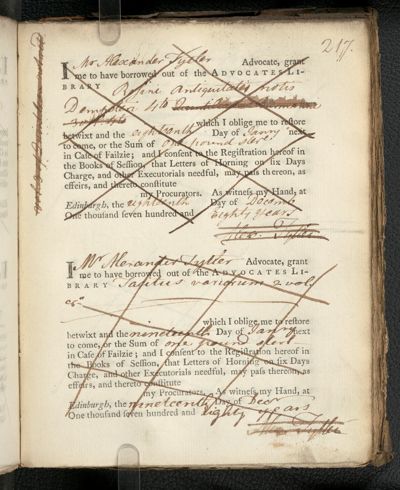 217.
I Mr Alexander Tytler Advocate, grant
me to have borrowed out of the ADVOCATES LI-
BRARY Rosini Antiquitates notis
Dempsteri 4to
which I oblige me to restore
betwixt and the eighteenth Day of Janry next
to come, or the Sum of one pound sterl
in Case of Failzie; and I consent to the Registration hereof in
the Books of Session, that Letters of Horning on six Days
Charge, and other Executorials needful, may pass thereon, as
effeirs, and thereto constitute
my Procurators. As witness my Hand, at
Edinburgh, the eighteenth Day of Decemb
One thousand seven hundred and eighty years
Alexr Tytler
I Mr Alexander Tytler Advocate, grant
me to have borrowed out of the ADVOCATES LI-
BRARY Tacitus variorum 2 vols
which I oblige me to restore
betwixt and the nineteenth Day of Janry next
to come, or the Sum of one pound sterl
in Case of Failzie; and I consent to the Registration hereof in
the Books of Session, that Letters of Horning on six Days
Charge, and other Executorials needful, may pass thereon, as
effeirs, and thereto constitute
my Procurators. As witness my Hand, at
Edinburgh, the nineteenth Day of Decr
One thousand seven hundred and eighty years
Alexr Tytler